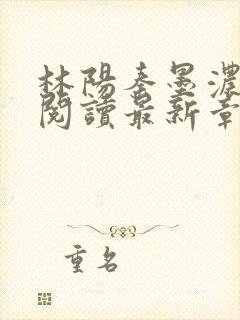 林陽秦墨濃
閱讀最新章
重名